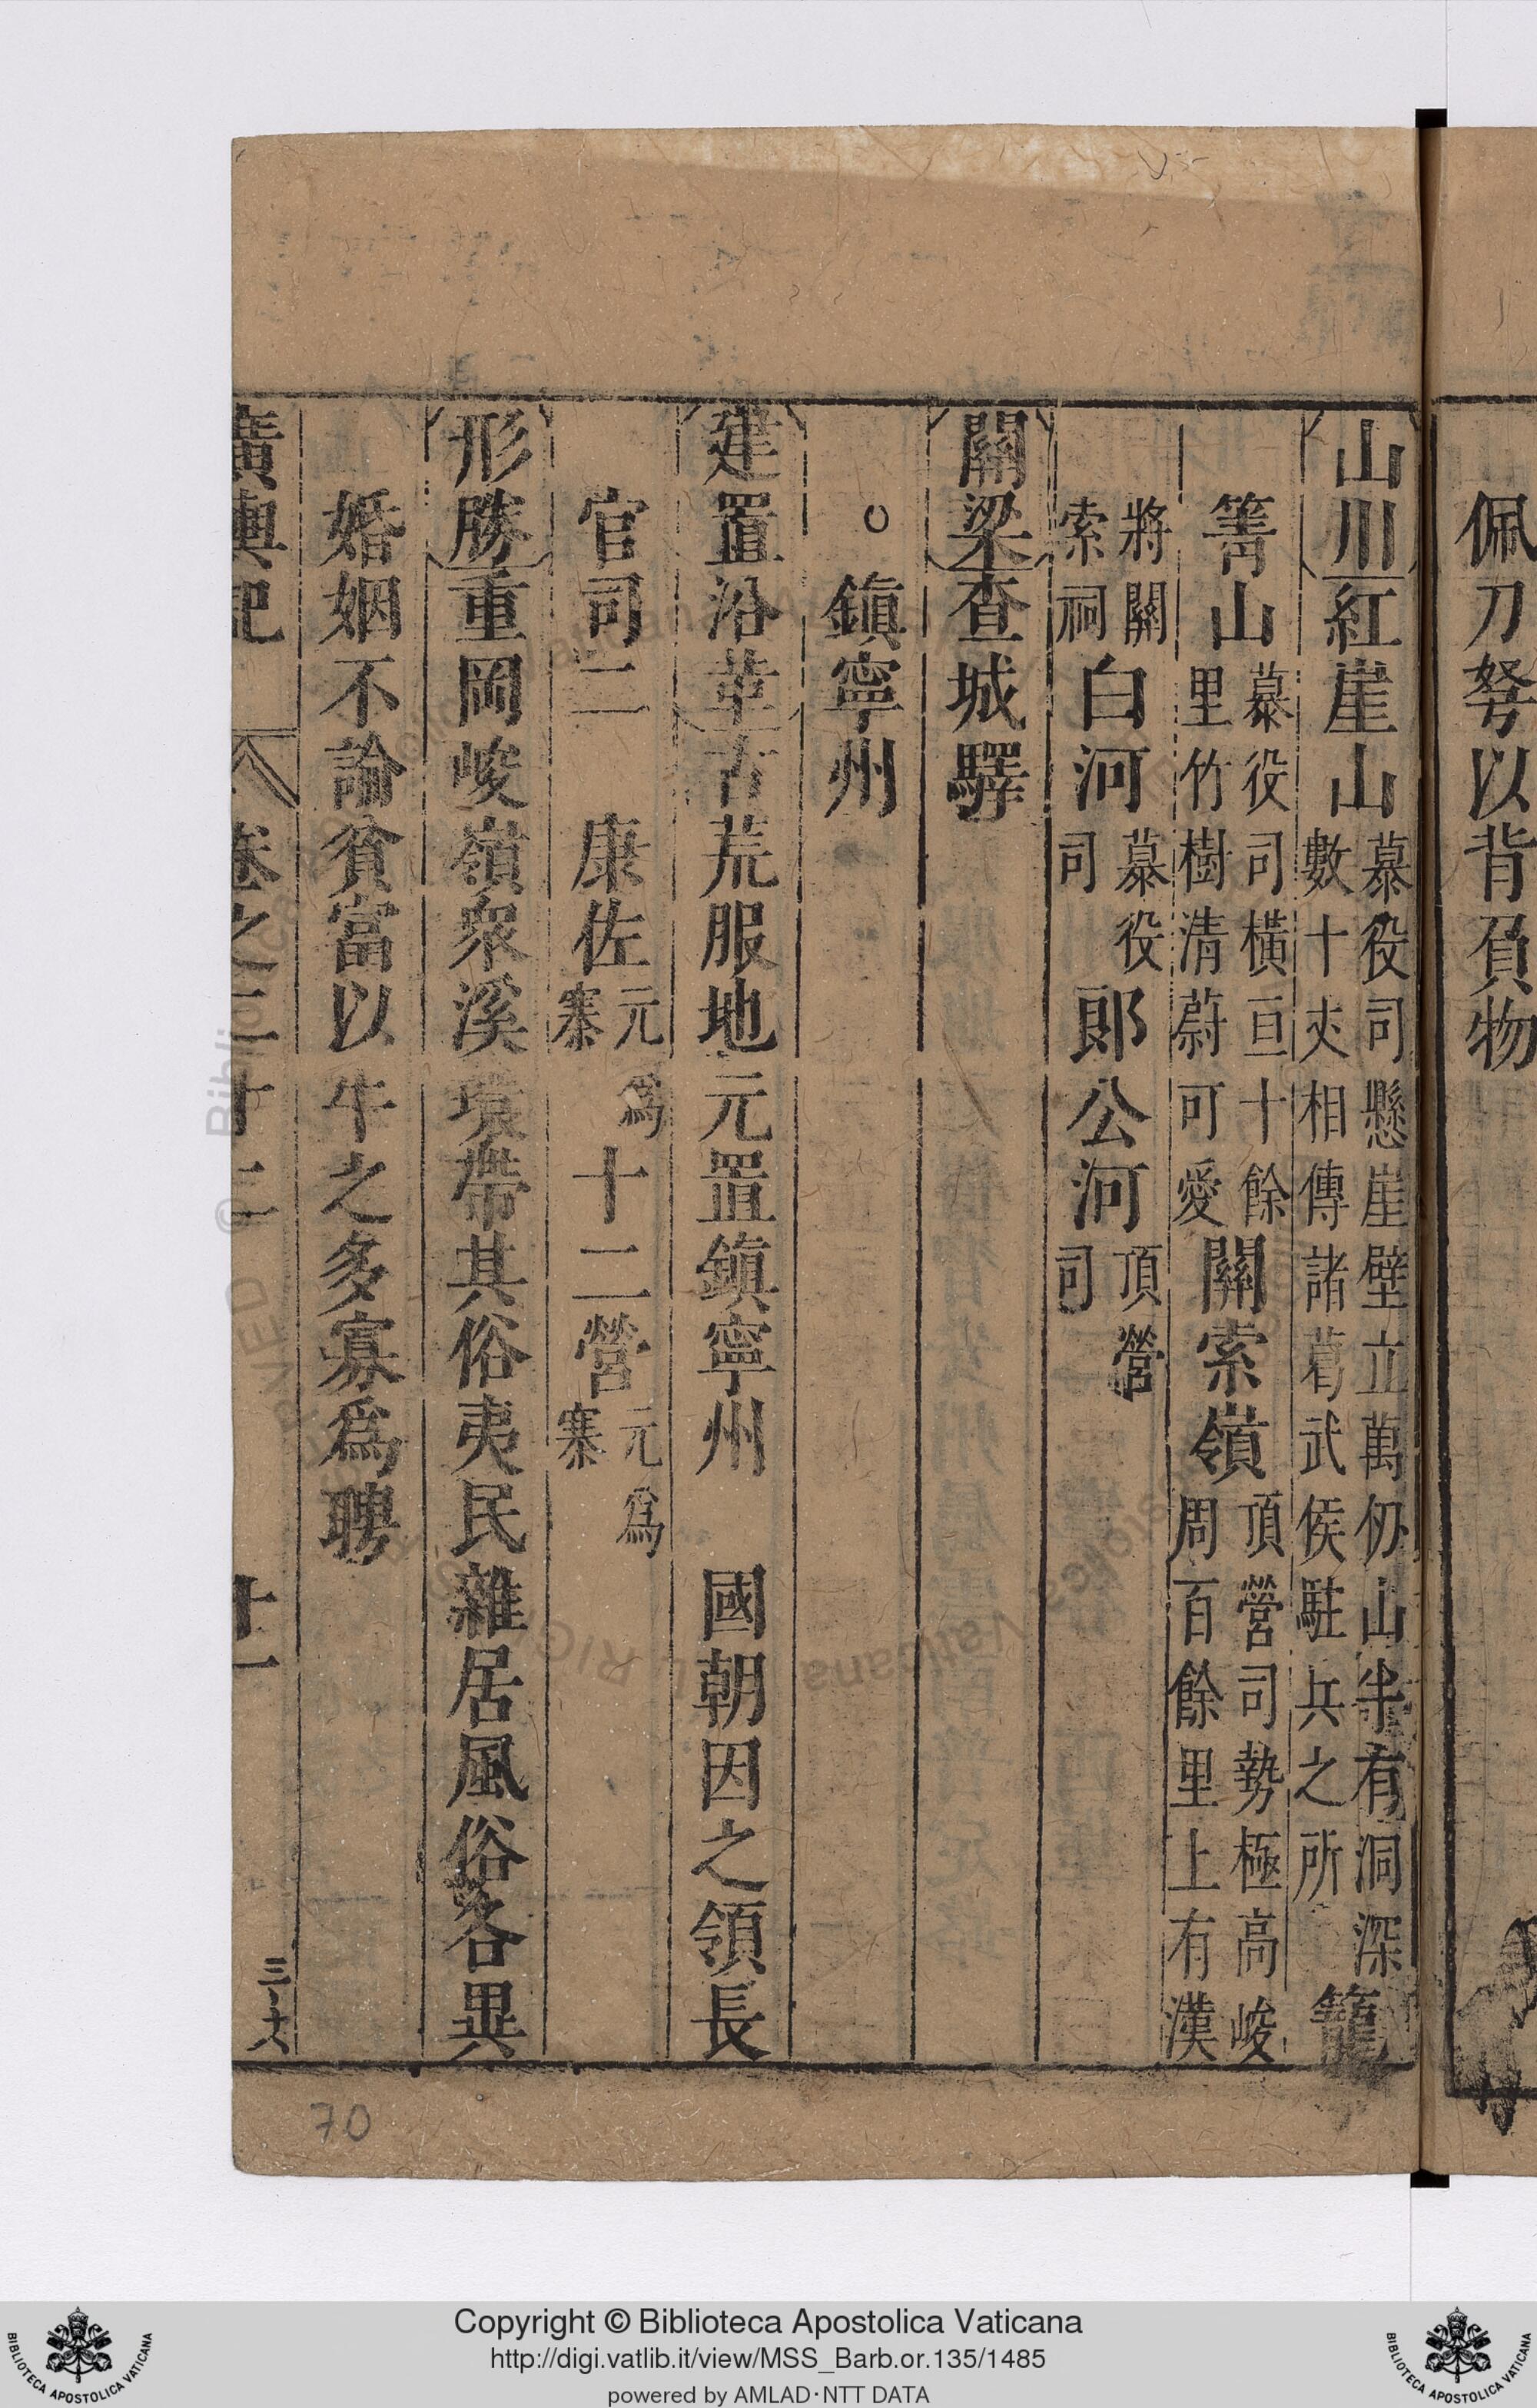 佩刀弩以背負物
山川紅崖山慕役司懸崖壁立萬仞山半有洞深數十丈相傳諸葛武侯駐兵之所籠
箐山慕役司橫亘十餘里竹樹清蔚可愛關索嶺頂營司勢極高峻周百餘里上有漢
將關索祠白河慕役司郎公河頂營司
關梁查城驛
○鎮寧州
建置沿革古荒服地元置鎮寧州 國朝因之領長
官司二 康佐元為寨 十二營元為寨
形勝重岡峻嶺衆溪環帶其俗夷民雜居風俗各異
婚姻不論貧富以牛之多寡爲聘
廣輿記 卷之二十二 十一 三六
70
Copyright © Biblioteca Apostolica Vaticana
http://digi.vatlib.it/view/MSS_Barb.or.135/1485
powered by AMLAD·NTT DATA
BIBLIOTECA APOSTOLICA VATICANA
BIBLIOTECA APOSTOLICA VATICANA